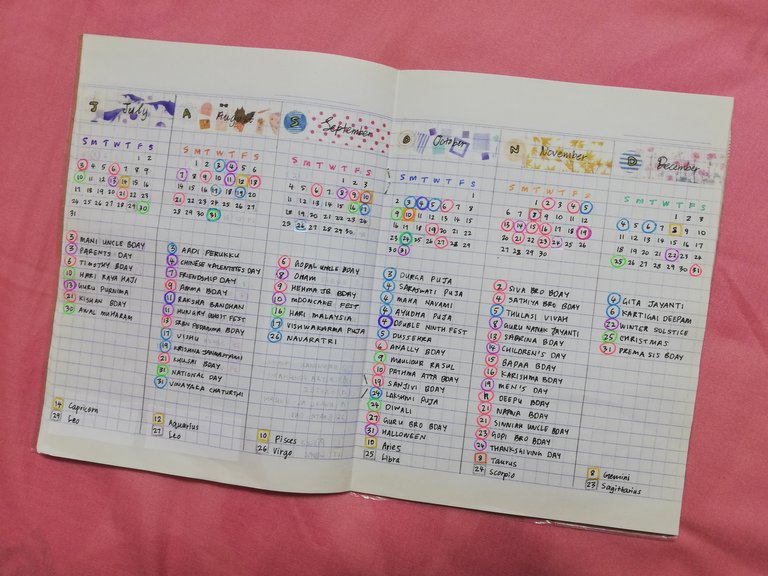 J July
S M T W T F S
1 2
3 4 5 6 7 8 9
10 11 12 13 14 15 16
17 18 19 20 21 22 23
24 25 26 27 28 29 30
31
3 MANI UNCLE BDAY
3 PARENTS DAY
6 TIMOTHY BDAY
10 HARI RAYA HAJI
13 GURU PURNIMA
21 KISHAN BDAY
30 AWAL MUHARAM
14 Capricorn
29 Leo
A August
S M T W T F S
1 2 3 4 5 6
7 8 9 10 11 12 13
14 15 16 17 18 19 20
21 22 23 24 25 26 27
28 29 30 31
3 AADI PERUKKU
4 CHINESE VALENTINES DAY
7 FRIENDSHIP DAY
9 AMMA BDAY
11 RAKSHA BANDHAN
11 HUNGRY GHOST FEST
13 SREN PERAMMA BDAY
17 VISHU
19 KRISHNA JANMASHTAMI
21 KHILSAI BDAY
31 NATIONAL DAY
31 VINAYAKA CHATURTHI
12 Aquarius
27 Leo
S September
S M T W T F S
1 2 3
4 5 6 7 8 9 10
11 12 13 14 15 16 17
18 19 20 21 22 23 24
25 26 27 28 29 30
6 GOPAL UNCLE BDAY
8 ONAM
9 HEMMA JB BDAY
10 MOONCAKE FEST
16 HARI MALAYSIA
17 VISHWAKARMA PUJA
26 NAVARATRI
10 Pisces
26 Virgo
O October
S M T W T F S
1
2 3 4 5 6 7 8
9 10 11 12 13 14 15
16 17 18 19 20 21 22
23 24 25 26 27 28 29
30 31
3 DURGA PUJA
3 SARASWATI PUJA
4 MAHA NAVAMI
4 AYUDHA PUJA
4 DOUBLE NINTH FEST
5 DUSSEHRA
6 ANALLY BDAY
9 MAULIDUR RASUL
10 PATHMA ATTA BDAY
19 SANJIVI BDAY
24 LAKSHMI PUJA
24 DIWALI
27 GURU BRO BDAY
31 HALLOWEEN
10 Aries
25 Libra
N November
S M T W T F S
1 2 3 4 5
6 7 8 9 10 11 12
13 14 15 16 17 18 19
20 21 22 23 24 25 26
27 28 29 30
2 SIVA BRO BDAY
4 SATHIYA BRO BDAY
5 THULASI VIVAH
8 GURU NANAK JAYANTI
13 SABRINA BDAY
14 CHILDREN'S DAY
15 BAPAA BDAY
16 KARISHMA BDAY
19 MEN'S DAY
19 DEEPU BDAY
21 NAPNA BDAY
21 SINNIAH UNCLE BDAY
23 GOPI BRO BDAY
24 THANKSGIVING DAY
8 Taurus
24 Scorpio
D December
S M T W T F S
1 2 3
4 5 6 7 8 9 10
11 12 13 14 15 16 17
18 19 20 21 22 23 24
25 26 27 28 29 30 31
4 GITA JAYANTI
6 KARTIGAI DEEPAM
22 WINTER SOLSTICE
25 CHRISTMAS
31 PREMA SIS BDAY
8 Gemini
23 Sagittarius